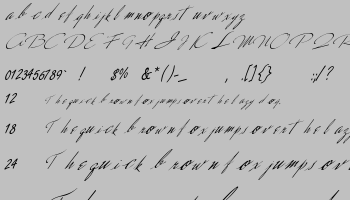 a b c d e f g h i j k l m n o p q r s t u v w x y z
A B C D E F G H I J K L M N O P Q R
0123456789` ! $% &*()-_ , .[]{} :;/?
12 The quick brown fox jumps over the lazy dog.
18 The quick brown fox jumps over the lazy
24 The quick brown fox jumps over